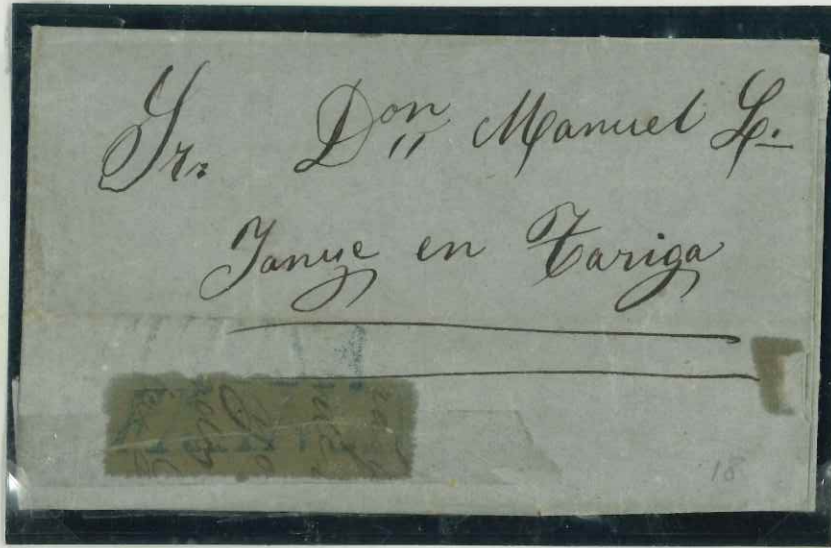 Sr. Don Manuel L.
Januze en Tariga
18